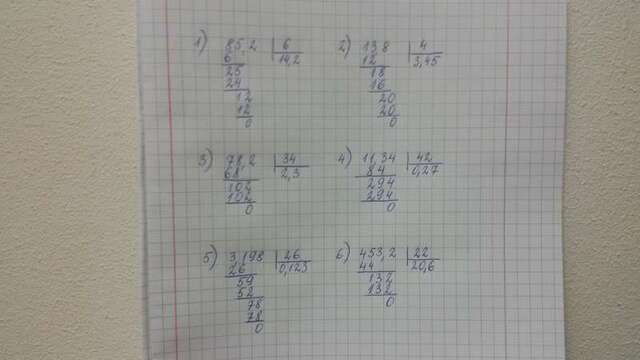 1) 85,2 | 6 2) 13,8 | 4
6 14,2 12 3,45
25 18
24 16
12 20
12 20
0 0
3) 78,2 | 34 4) 11,34 | 42
68 2,3 84 0,27
102 294
102 294
0 0
5) 3,198 | 26 6) 453,2 | 22
26 0,123 44 20,6
59 132
52 132
78 0
78
0